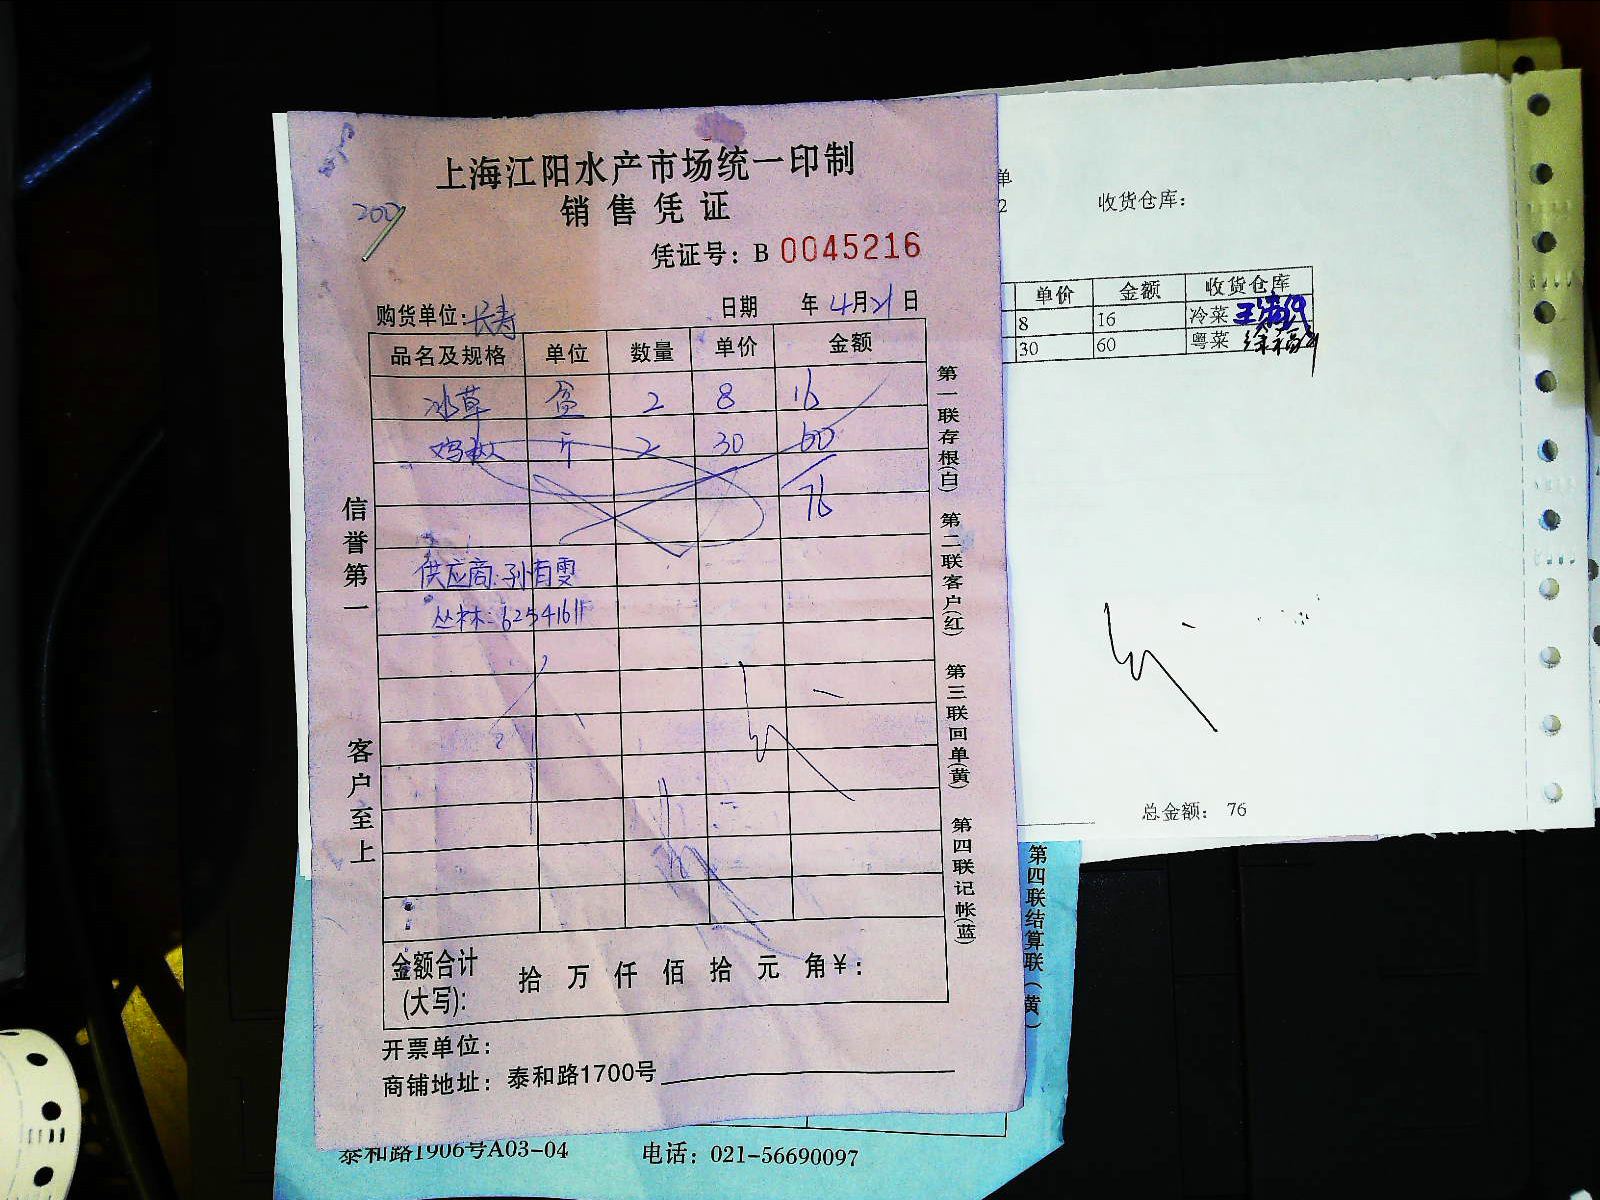 上海江阳水产市场统一印制
销售凭证
200
凭证号：B 0045216
购货单位：长寿 日期 年 4月21日
品名及规格 单位 数量 单价 金额
冰草 盒 2 8 16
斤 2 30 60
76
供应商：孙有雯
丛林：62541611
信誉第一
客户至上
第一联存根(白)
第二联客户(红)
第三联回单(黄)
第四联记帐(蓝)
金额合计(大写)： 拾 万 仟 佰 拾 元 角¥：
开票单位：
商铺地址：泰和路1700号
单
2
收货仓库：
单价 金额 收货仓库
8 16 冷菜
30 60 粤菜
总金额： 76
第四联结算联（黄）
泰和路1906号A03-04 电话：021-56690097